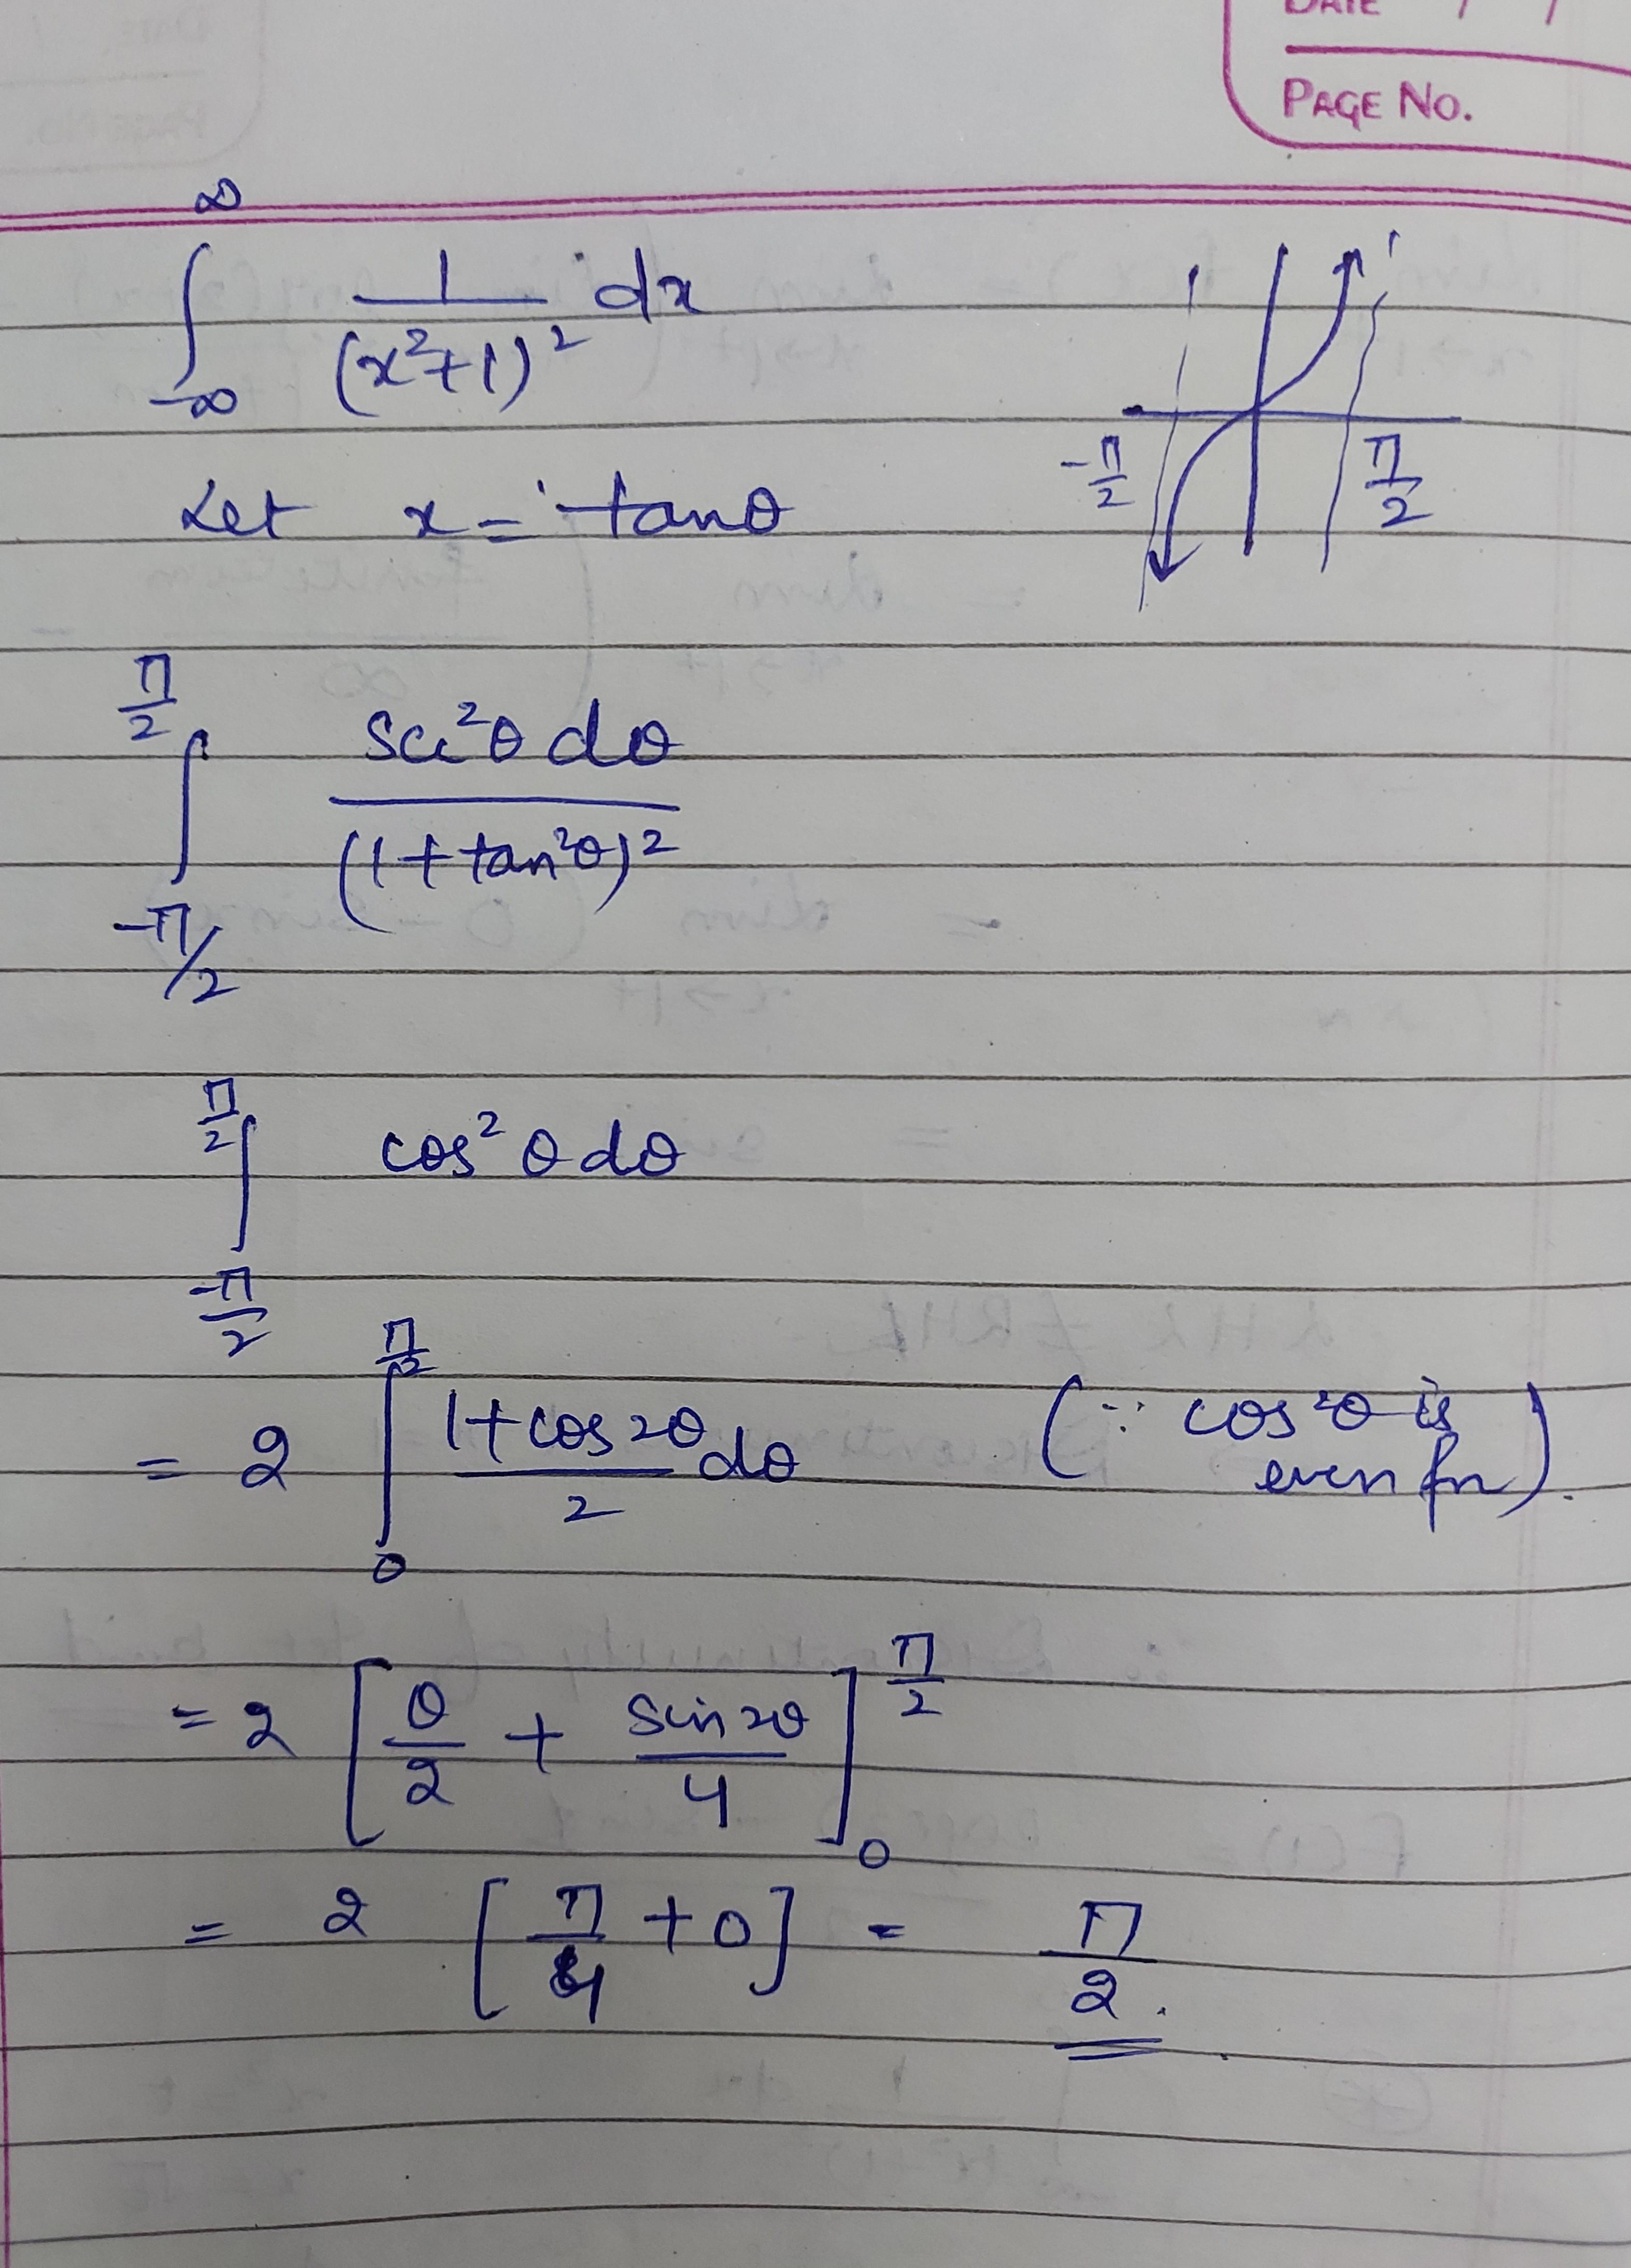 DATE / /
PAGE NO.
∫_{-∞}^{∞} 1/(x²+1)² dx
-π/2 π/2
Let x = tanθ
∫_{-π/2}^{π/2} sec²θ dθ/(1+tan²θ)²
∫_{-π/2}^{π/2} cos²θ dθ
= 2 ∫_{0}^{π/2} (1+cos2θ)/2 dθ (∵ cos²θ is
even fn).
= 2 [θ/2 + sin2θ/4]_{0}^{π/2}
= 2 [π/4 + 0] = π/2.